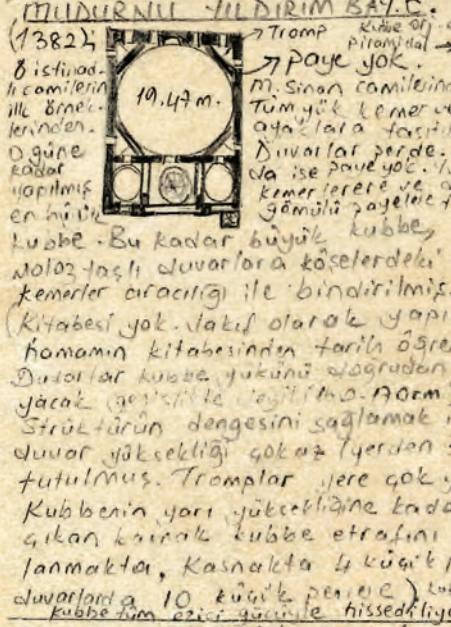 MUDURNU YILDIRIM BAY. C.
(1382),
8 istinad-
lı camilerin
ilk örnek-
lerinden.
O güne
kadar
yapılmış
en büyük
19.47 m.
→ Tromp
Kubbe
piramidal →
→ paye yok.
M. Sinan camilerind
Tüm yük kemer ve
ayaklara taşıtı
Duvarlar perde.
da ise paye yok.
kemerlere ve
gömülü payelere
kubbe. Bu kadar büyük kubbe,
moloz taşlı duvarlara köşelerdeki
kemerler aracılığı ile bindirilmiş.
(Kitabesi yok. Vakıf olarak yapı
hamamın kitabesinden tarih öğre
Duvarlar kubbe yükünü doğrudan
yacak genişlikte değil
Strüktürün dengesini sağlamak
duvar yüksekliği çok az (yerden
tutulmuş. Tromplar yere çok y
Kubbenin yarı yüksekliğine kada
çıkan kasnak kubbe etrafını
lanmakta, Kasnakta 4 küçük
duvarlarda 10 küçük pencere)
kubbe tüm ezici gücüyle hissediliyo